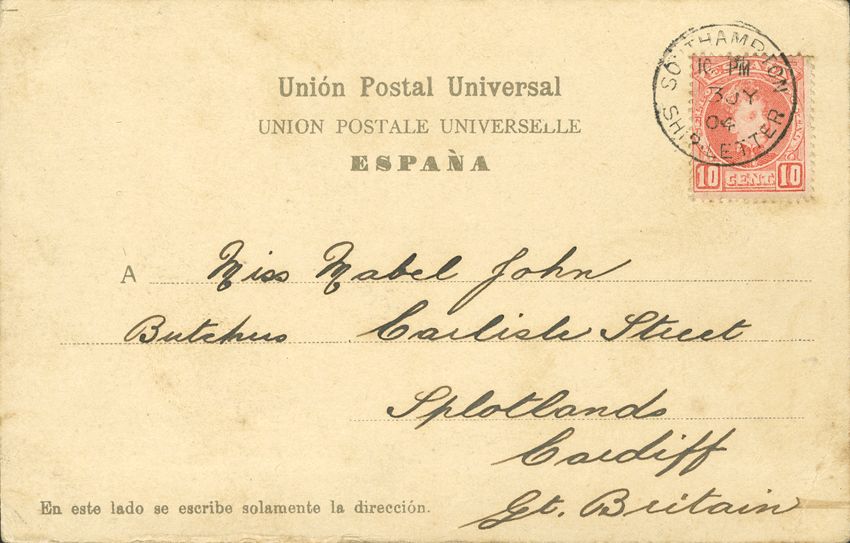 Unión Postal Universal
UNION POSTALE UNIVERSELLE
ESPAÑA
SOUTHAMPTON
10 PM
3 JY
04
SHIP LETTER
10 CENT. 10
A Miss Mabel John
Butchers Carlisle Street
Splotlands
Cardiff
Gt. Britain
En este lado se escribe solamente la dirección.